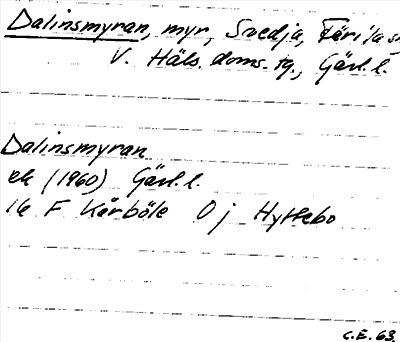 Dalinsmyran, myr, Svedja, Färila sn
V. Häls. doms. tg., Gävl. l.
Dalinsmyran
ek (1960) Gävl. l.
16 F Kårböle 0 j Hyttebo
C.E. 63.